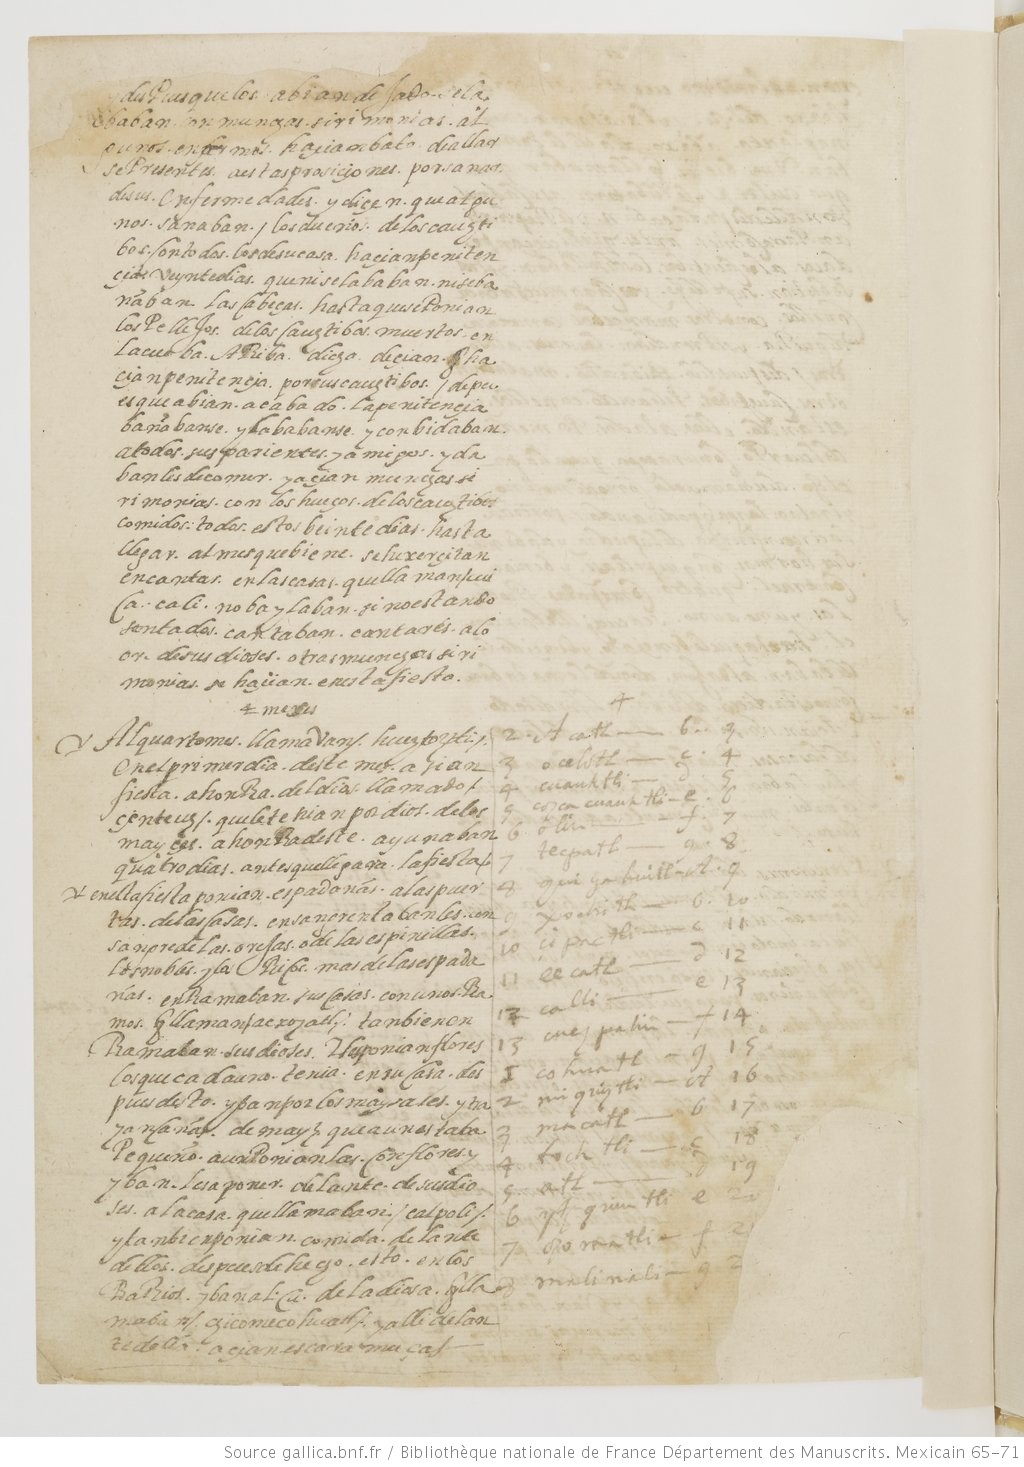 des Pues quelos abian desado y la
baban con munchas sirimonias al
gunos enfermos haçian bato de allar
se Presentes a estas prosiçiones por sanar
desus enfermedades y diçen que algu
nos sanaban / los dueños de los cauti
bos con todos los de su casa haçian peniten
çia veynte dias que ni se lababan ni se ba
ñaban las cabeças hasta que se Ponian
los Pellejos de los cauptibos muertos en
la cueba aRiba digo deçian q̃ ha
çian penitençia por sus cauptibos / despu
es que abian acabado la penitençia
bañabanse y lababanse y conbidaban
a todos sus parientes y amigos y da
banles de comer y açian munchas si
rimonias con los huesos de los cauptibos
comidos todos estos beinte dias hasta
llegar al mes que biene se huxerçitan
en cantar en las casas que llaman cui
ca cali no baylaban sino estando
sentados cantaban cantares a lo
or de sus dioses otras munchas siri
monias se haçian en esta fiesta
4 mexis
Al quarto mes llamavan hueytoztli
En el primer dia deste mes açian
fiesta a honRa del dios llamado
çenteutl que le tenian por dios de los
mayçes a honRa deste ayunaban
quatro dias antes que llegara la fiesta
en esta fiesta ponian espadañas a las puer
tas de las casas ensangrentabanles con
sangre de las orejas o de las espinillas
los nobles y la Rica mas de las espada
ñas enRamaban sus casas con unos Ra
mos q̃ llaman acxoyatl tanbien en
Ramaban sus dioses y les ponian flores
los que cada uno tenia en su casa des
pues desto yban por los mayzales y tra
yan cañas de mayz que aun estaba
Pequeño a un Ponianlas con flores y
yban les a poner delante de sus dio
ses a la casa que llamaban calpoli
y tanbien ponian comida delante
dellos despues de hecho esto en los
BaRios yban al cu de la diosa q̃ lla
maban chicomecohuatl y alli delan
te della açian escaramuças
4
2 Acatl b 3
3 oçelotl c 4
4 cuauhtli d 5
5 cozcacuauhtli e 6
6 ólin f 7
7 tecpatl g 8
8 quiyahuitl A 9
9 xochitl b 10
10 çipactli c 11
11 eecatl d 12
12 calli e 13
13 cuezpalin f 14
1 cohuatl g 15
2 miquiztli A 16
3 maçatl b 17
4 tochtli c 18
5 atl d 19
6 ytzquintli e 20
7 oçomatli f 2
8 malinali g 2